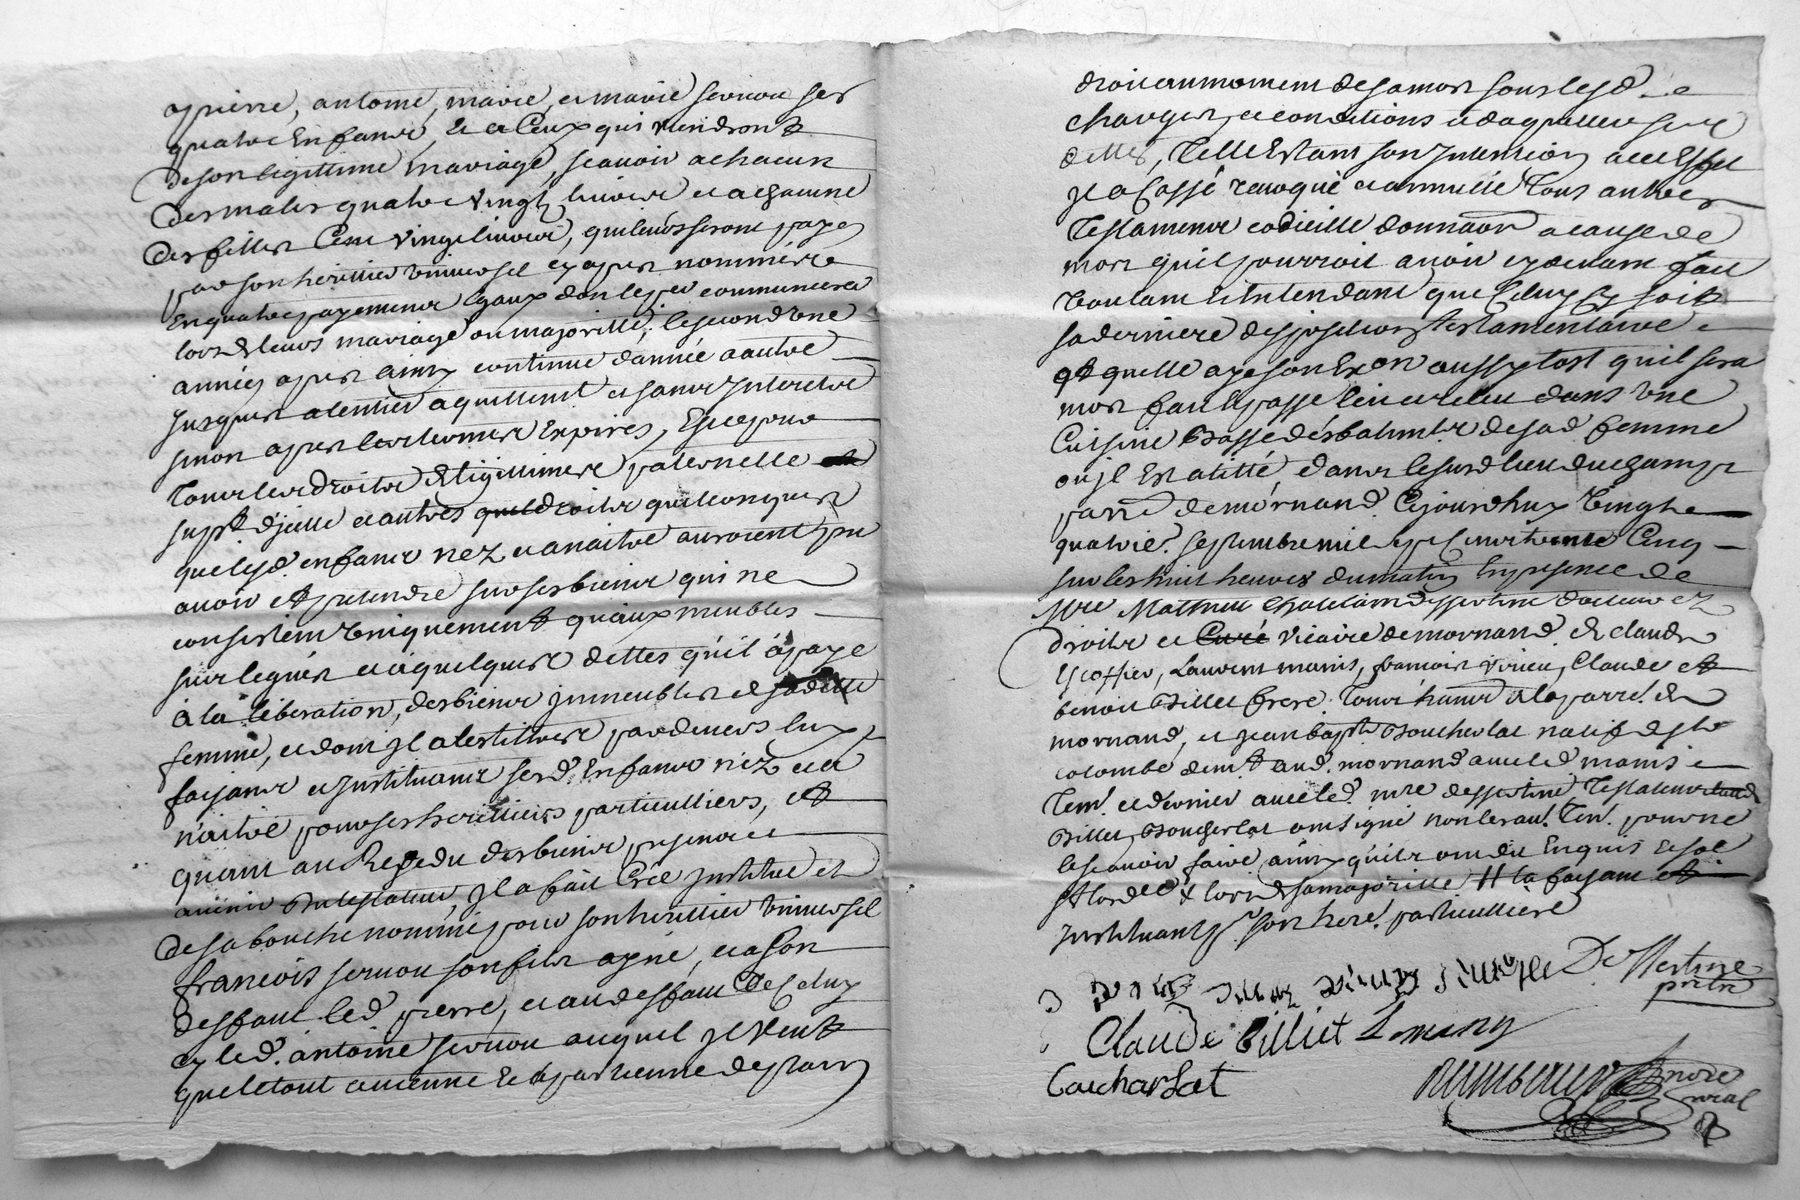 a pierre, antoine, marie, et marie servou ses
quatre Enfants, et a Ceux qui viendront
de son legittime mariage, scavoir a chacun
des males quatre vingt livres et a chacune
des filles Cent vingt livres, qui leurs seront payés
par son heritier universel cy apres nommé
En quatre payements Egaux dont le pr commencera
lors de leurs mariage ou majoritté, le second une
année apres ainsy continue d'année a autre
jusques a lentier aquittement et sans Interets
sinon apres les termes Expirés, Et ce pour
tous les droits de légittimes paternelle
supt d'jcelle et autres droits quelconques
que lesd. enfants nez et a naitre auroient pu
avoir et pretendre sur ses biens qui ne
consistent uniquement qu'aux meubles
et a quelques dettes qu'il a payé
a la liberation, des biens jmmeubles de sadte
femme, et dont jl a par devers luy
faisant et Instituant sesd. Enfants nez et a
naitre pour ses heritiers particulliers, et
quant au Reste du des biens presents et
avenir du testateur, jl a fait Créé Institué et
de sa bouche nommé pour son heritier universel
francois servou son fils ayné, et a son
deffaut led. pierre, et au deffaut de celuy
cy led. antoine servou auquel jl veut
que le tout avienne et apartienne de plain
droit au moment de sa mort sous lesd.
charges, et conditions et daquitter ses
dettes, Telle Estant son Intention a cet Effet
jl a Cassé revoqué et annullé Tous autres
Testaments codicille donnaon a cause de
mort quil pourroit avoir cy devant fait
voulant Et Intendant que Celuy cy soit
sa derniere disposition testamentaire
et quelle aye son Exon aussytost quil sera
mort fait et passé leu et releu dans une
Cuisine Basse des batimts de sad. femme
ou jl Est alitté dans le susd lieu du champs
parre de mornand. Cejourdhuy vingt
quatrie. septembre mil sept cent trente Cinq
sur les huit heures du matin En presence de
Mre Mathieu Chatelain dessertine docteur ez
droits et Curé vicaire de mornand. de claude
Escoffier, Laurent manis, francois virieu, Claude et
benoit Billet frere. Tous habts de la parre. de
mornand, et jean bapte Boucherlat natif de ste
colombe demt aud. mornand avec led manis
Tem. et dernier avec led. mre dessertine Testateur
Billet Boucherlat ont signé non les au. Tem. pour ne
le scavoir faire, ainsy qu'ils ont dit Enquis
lors de sa majoritté // la faisant et
Instituant pr. son here. particulliere
Dessertine
pretre
Claude billiet L manis
Boucharlat
nore
roial